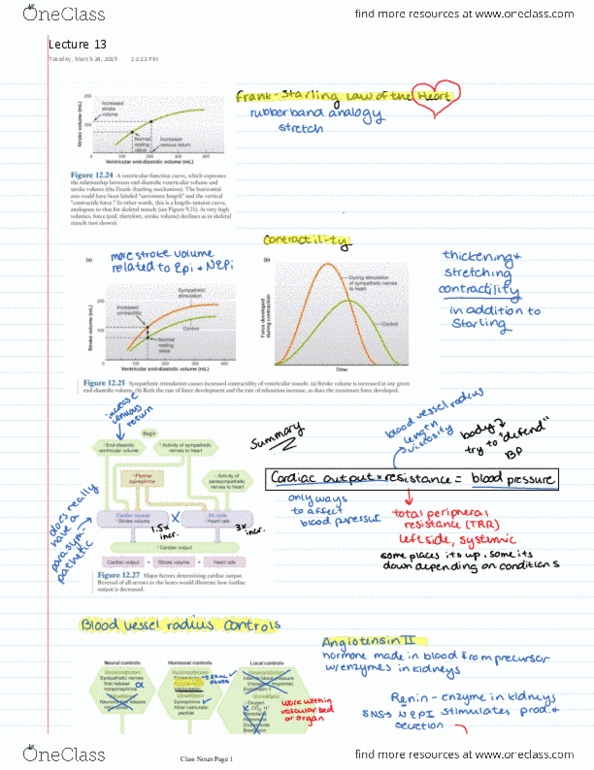 OneClass
find more resources at www.oneclass.com
Lecture 13
Tuesday, March 24, 2015 12:22 PM
Frank-Starling Law of the Heart
rubber band analogy
stretch
200
100
0
Stroke volume (mL)
Increased
stroke
volume
Normal
resting
value
Increased
venous return
100 200 300 400
Ventricular end-diastolic volume (mL)
Figure 12.24 A ventricular-function curve, which expresses
the relationship between end-diastolic ventricular volume and
stroke volume (the Frank–Starling mechanism). The horizontal
axis could have been labeled "sarcomere length" and the vertical
"contractile force." In other words, this is a length–tension curve,
analogous to that for skeletal muscle (see Figure 9.21). At very high
volumes, force (and, therefore, stroke volume) declines as in skeletal
muscle (not shown).
Contractility
(a)
more stroke volume
related to Epi + NEpi
Sympathetic
stimulation
Increased
contractility
Control
Normal
resting
value
200
100
Stroke volume (mL)
0 100 200 300 400
Ventricular end-diastolic volume (mL)
(b)
During stimulation
of sympathetic nerves
to heart
Control
Force developed
during contraction
Time
thickening +
stretching
contractility
in addition to
Starling
Figure 12.25 Sympathetic stimulation causes increased contractility of ventricular muscle. (a) Stroke volume is increased at any given
end-diastolic volume. (b) Both the rate of force development and the rate of relaxation increase, as does the maximum force developed.
venous return
Begin
End-diastolic
ventricular volume
Activity of sympathetic
nerves to heart
Plasma
epinephrine
Activity of
parasympathetic
nerves to heart
Cardiac muscle
Stroke volume
X
SA node
Heart rate
1.5x
incr.
3x
incr.
Cardiac output
Cardiac output = Stroke volume × Heart rate
does really
have a
parasym-
pathetic
Figure 12.27 Major factors determining cardiac output.
Reversal of all arrows in the boxes would illustrate how cardiac
output is decreased.
Summary
blood vessel radius
length
viscosity
body
try to "defend"
BP
Cardiac output × resistance = blood pressure
only ways
to affect
blood pressure
total peripheral
resistance (TRA)
left side, systemic
some places its up, some its
down depending on conditions
Blood vessel radius controls
Neural controls
Sympathetic nerves
that release
norepinephrine
α
Hormonal controls
Epinephrine
Atrial natriuretic
peptide
Local controls
Oxygen
work within
vascular bed
or organ
Angiotensin II
hormone made in blood from precursor
w/enzymes in kidneys
Renin - enzyme in kidneys
SNS → NEPI stimulates prod. +
secretion
OneClass
Class Notes Page 1
find more resources at www.oneclass.com